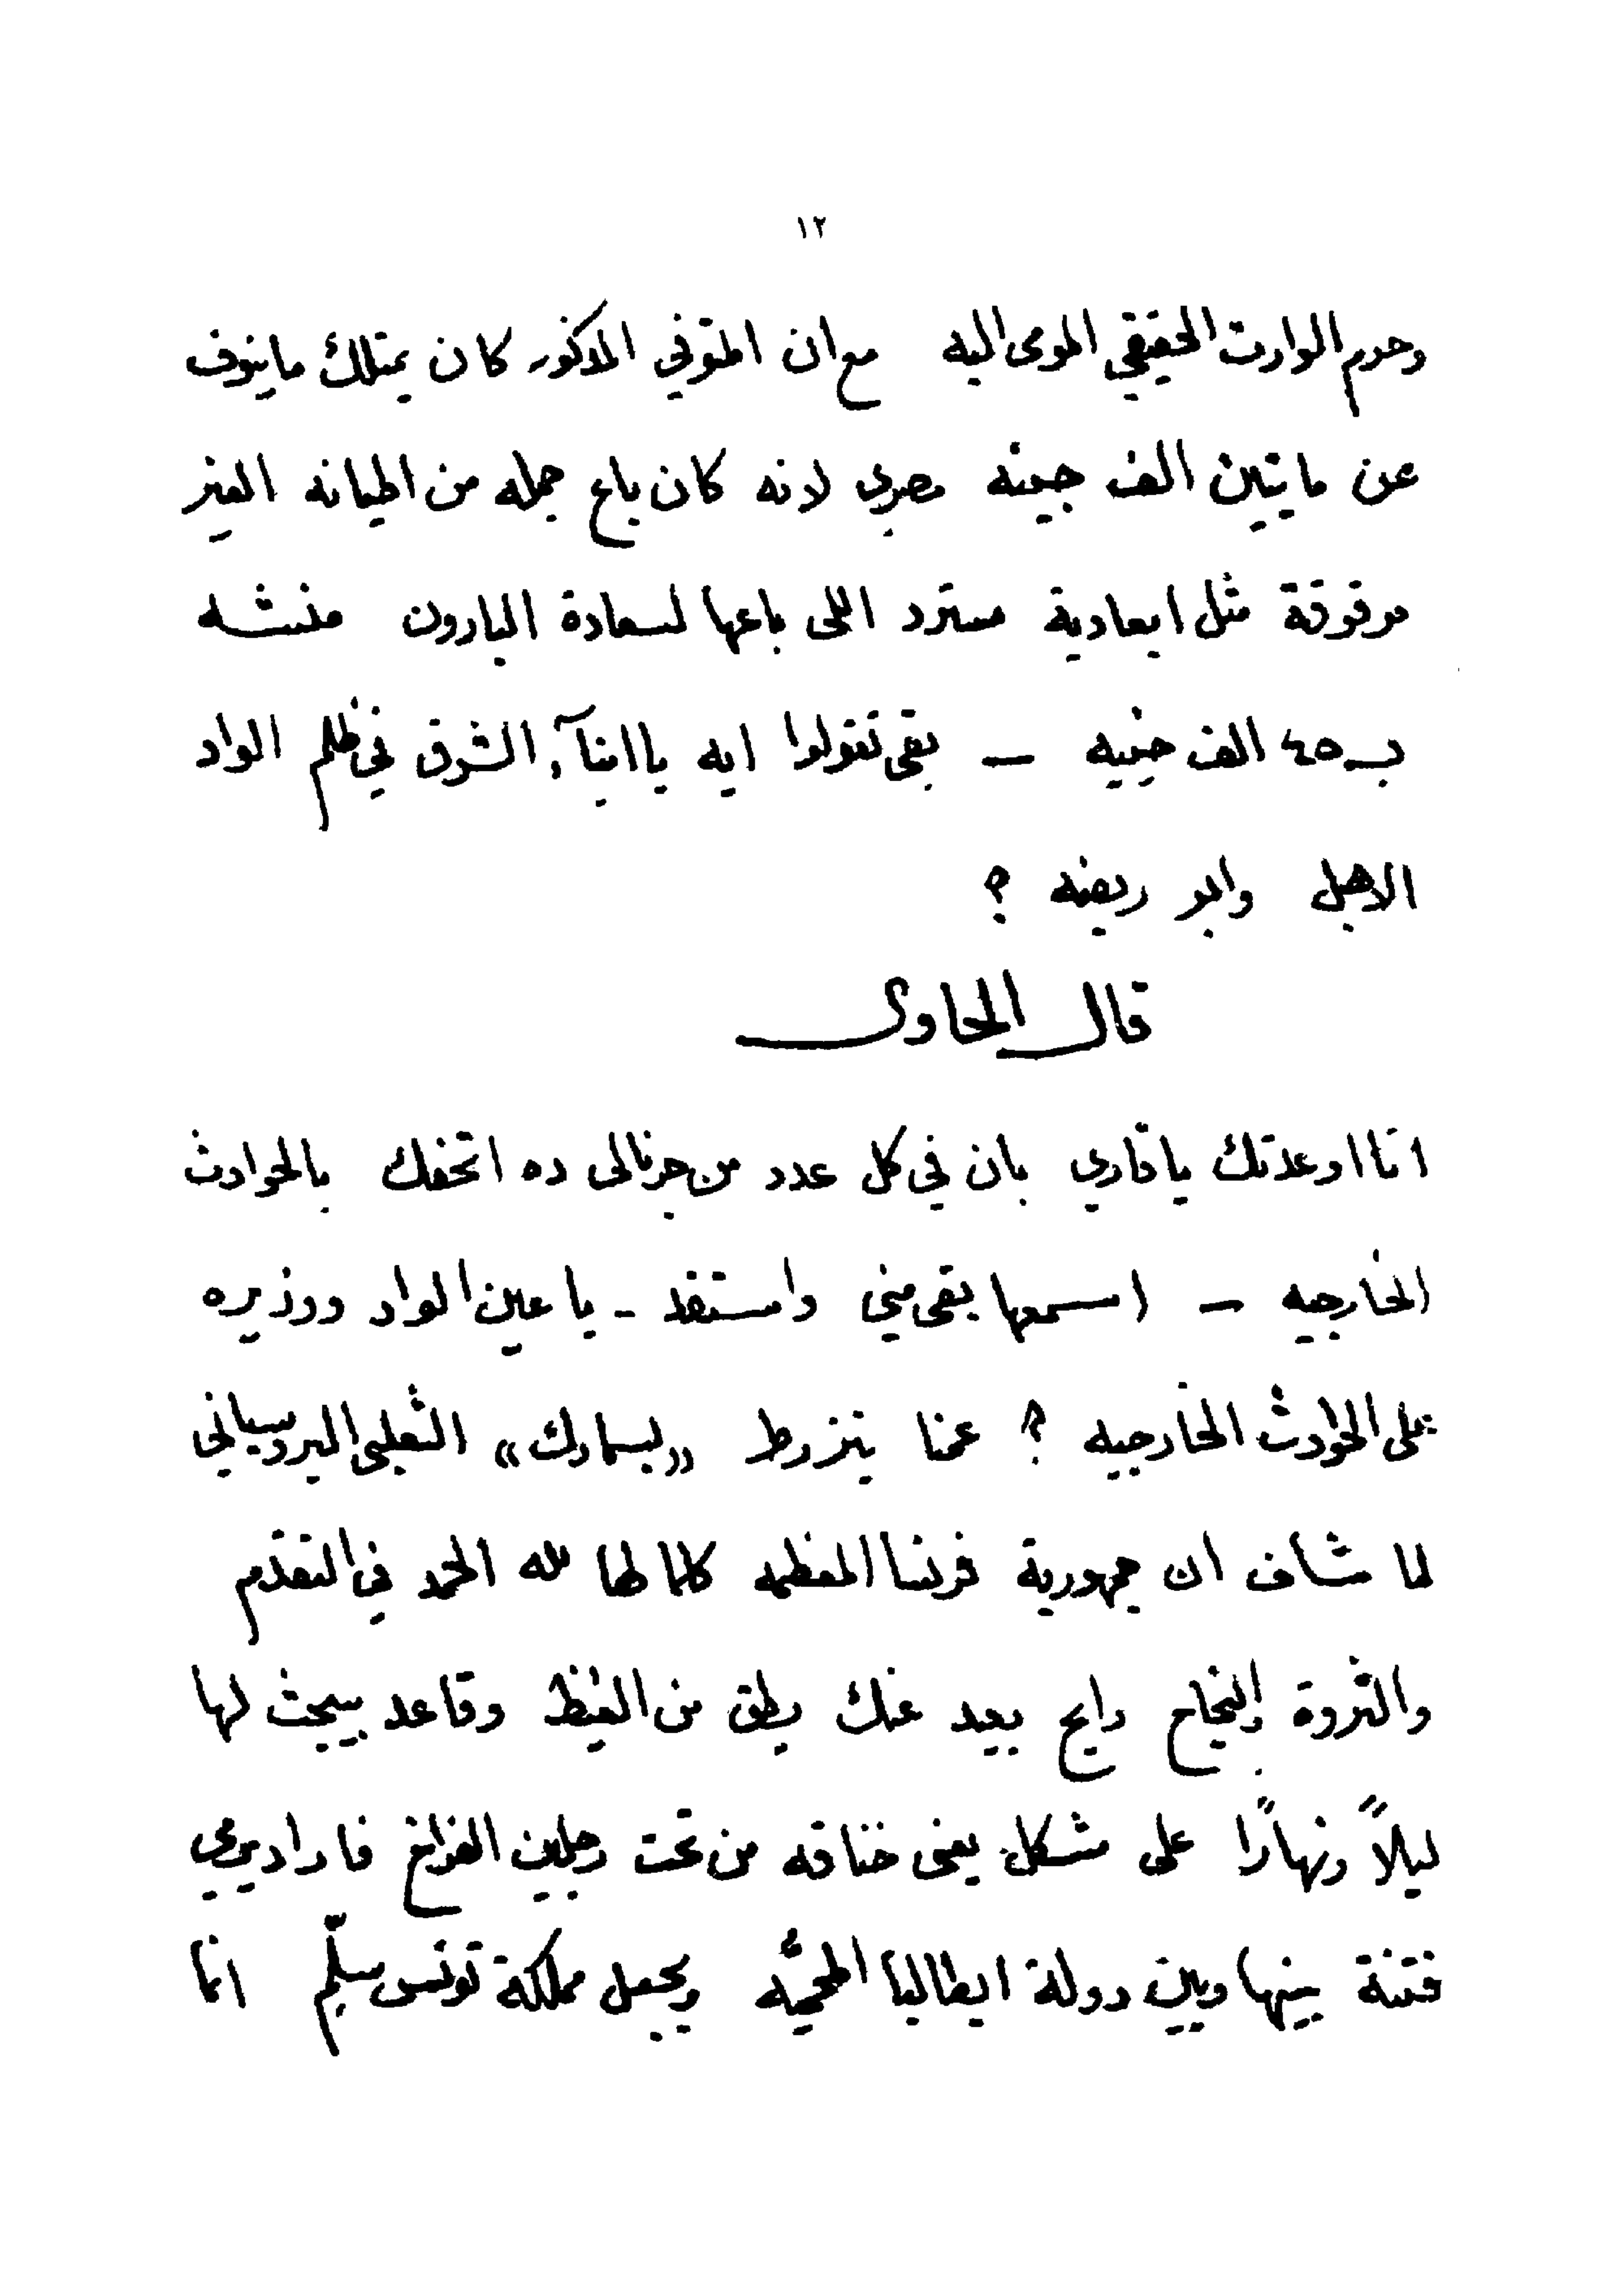 ١٢
وحرم الوارث الحقيقي المومى اليه مع ان المتوفي المذكور كان يمتلك ما ينوف
عن مايتين الف جينه مصري لانه كان باع جمله من اطيانه الغير
موقوفة مثل ابعادية مسترد اللى باعها لسعادة البارون منشه
بـ ٤٥ الف جنيه — بقى تقولوا ايه يا ابنآء الشرق في ظلم الواد
الاهبل وابو ريضه ؟
قال الحاوى
انا اوعدتك يا قاري بان في كل عدد من جرنالى ده اتحفك بالحوادث
الخارجيه — اسمعها بقى مني واستفد - يا عين الواد ووزيره
على الحوادث الخارجيه ؟ عمنا يتزرط «بسمارك» الثعلبى البروسيانى
لما شاف ان جمهورية فرنسا المعظمه كلما لها لله الحمد في التقدم
والثروة والنجاح رايح بعيد عنك يطق من الغيظ وقاعد يبحث لها
ليلاً ونهارًا على مشكل يعنى خناقه من تحت رجلين الفراخ فاراد يرمي
فتنة بينها وبين دولة ايطاليا المحميّه ويجعل مملكة تونس سلّم انما